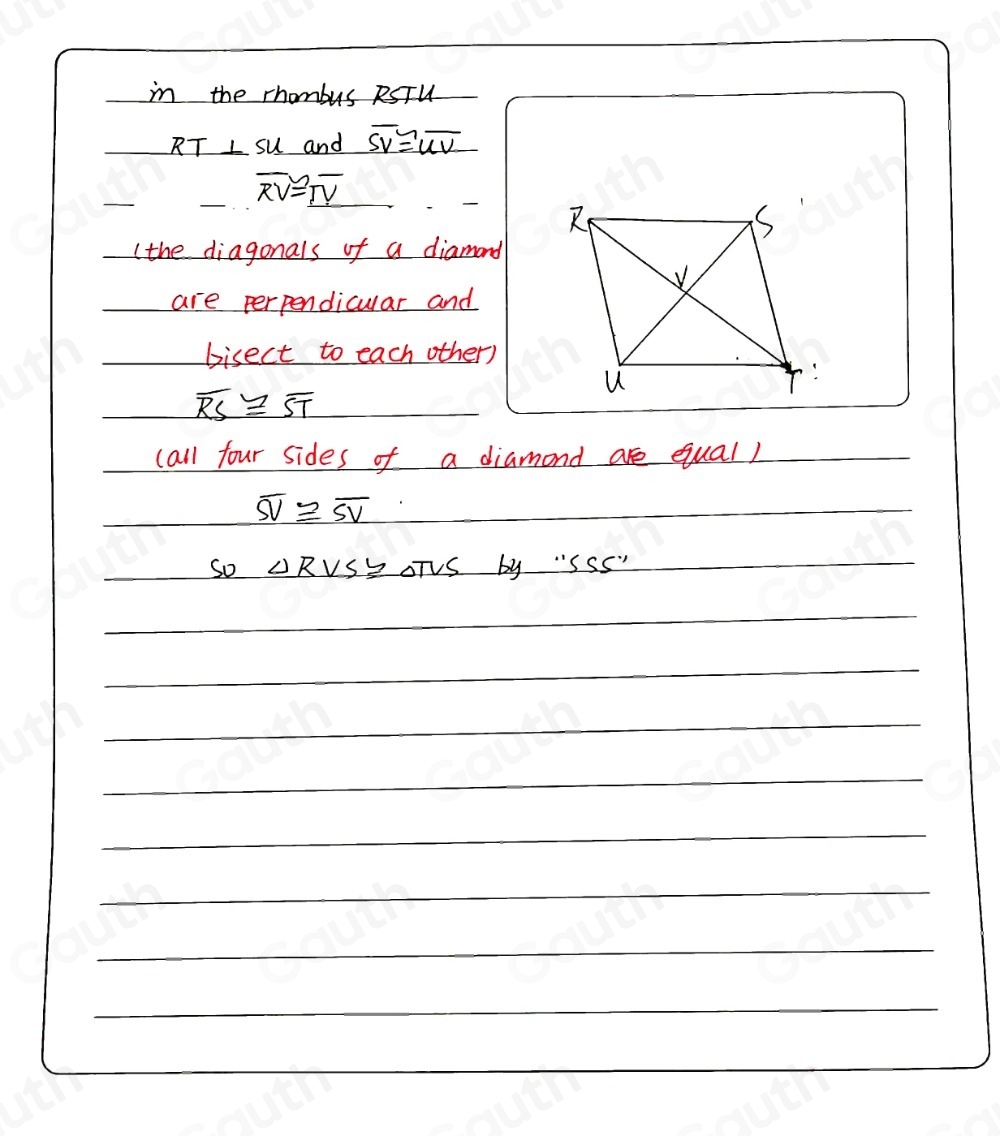 in the rhombus RSTU
RT ⊥ SU and S̅V̅ ≅ U̅V̅
R̅V̅ ≅ T̅V̅
(the diagonals of a diamond
are perpendicular and
bisect to each other)
R̅S̅ ≅ S̅T̅
(all four sides of a diamond are equal)
S̅V̅ ≅ S̅V̅
so △RVS ≅ △TVS by "SSS"
R S
V
U T
Gauth